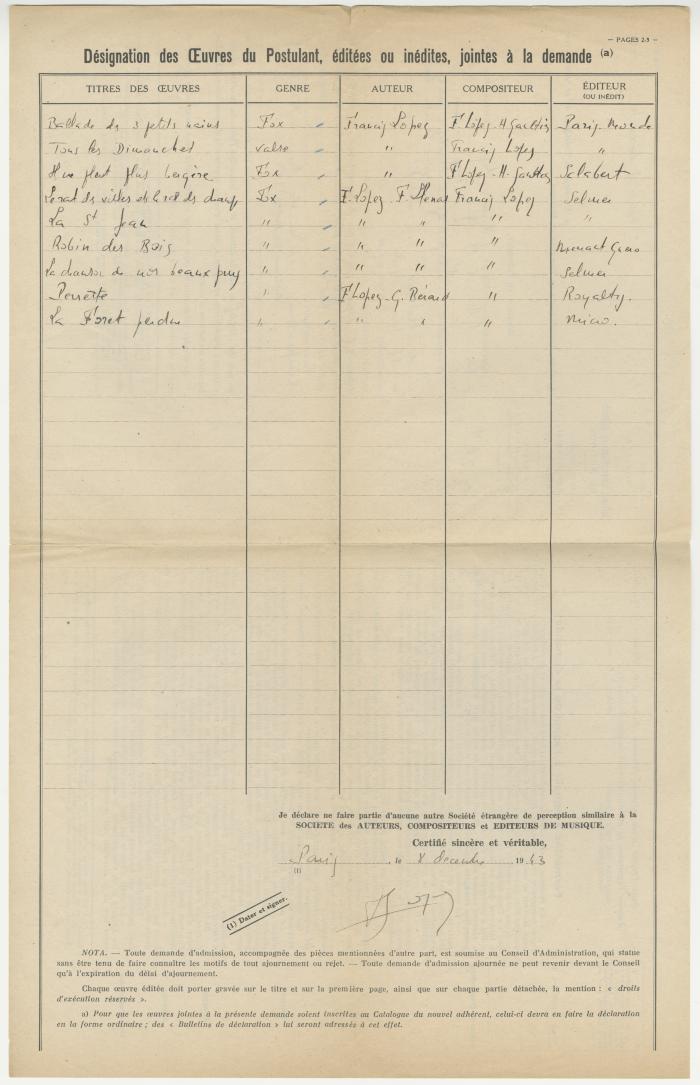 — PAGES 2-3 —
Désignation des Œuvres du Postulant, éditées ou inédites, jointes à la demande (a)
TITRES DES ŒUVRES GENRE AUTEUR COMPOSITEUR ÉDITEUR (OU INÉDIT)
Ballade des 3 petits nains Fox Francis Lopez F Lopez - H Gaultier Paris Monde
Tous les Dimanches valse " Francis Lopez "
Il ne pleut plus bergère Fox " F Lopez - H. Salabert
Le rat des villes et le rat des champs Fox F. Lopez F. Francis Lopez Selmer
La St Jean " " " " "
Robin des Bois " " " "
La chanson de nos beaux " " " " Selmer
Perrette " F Lopez - G. Bérard " Royalty.
La Foret perdue " " " " Micro.
Je déclare ne faire partie d'aucune autre Société étrangère de perception similaire à la
SOCIETE des AUTEURS, COMPOSITEURS et EDITEURS DE MUSIQUE.
Certifié sincère et véritable,
Paris, le decembre 1943
(1)
(1) Dater et signer.
NOTA. — Toute demande d'admission, accompagnée des pièces mentionnées d'autre part, est soumise au Conseil d'Administration, qui statue
sans être tenu de faire connaître les motifs de tout ajournement ou rejet. — Toute demande d'admission ajournée ne peut revenir devant le Conseil
qu'à l'expiration du délai d'ajournement.
Chaque œuvre éditée doit porter gravée sur le titre et sur la première page, ainsi que sur chaque partie détachée, la mention : « droits
d'exécution réservés ».
a) Pour que les œuvres jointes à la présente demande soient inscrites au Catalogue du nouvel adhérent, celui-ci devra en faire la déclaration
en la forme ordinaire ; des « Bulletins de déclaration » lui seront adressés à cet effet.